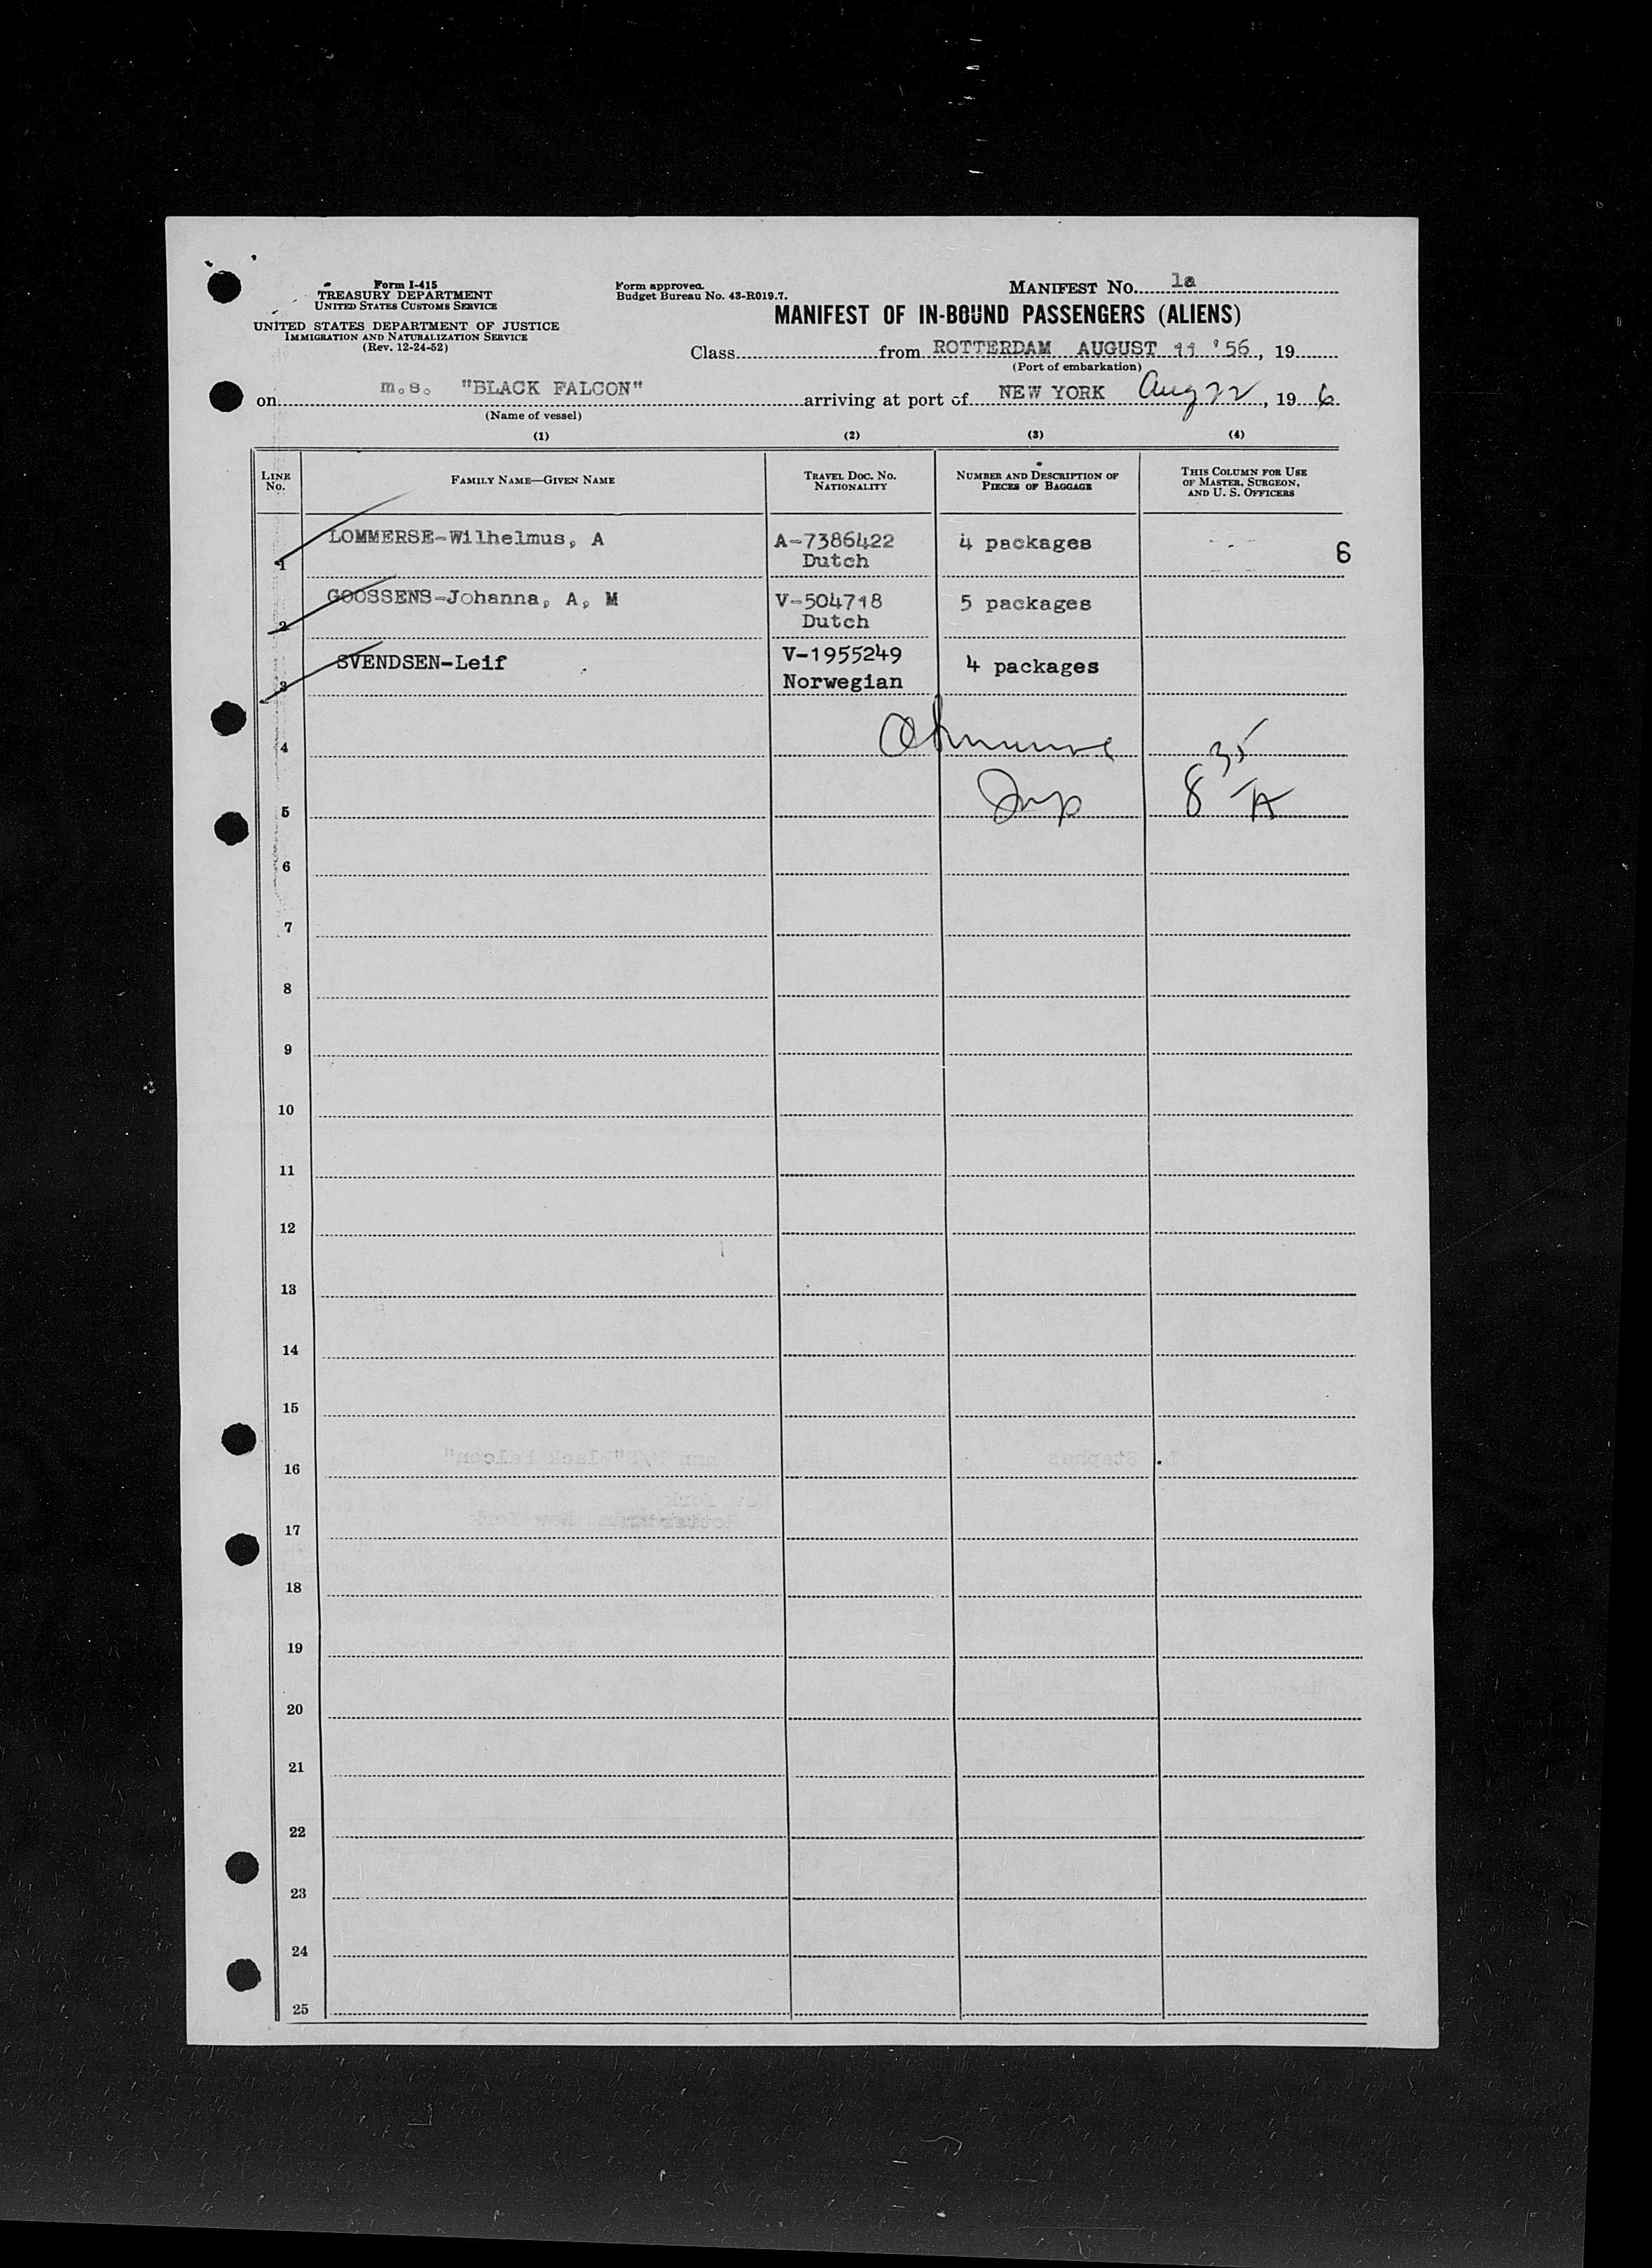 Form I-415
TREASURY DEPARTMENT
UNITED STATES CUSTOMS SERVICE
UNITED STATES DEPARTMENT OF JUSTICE
IMMIGRATION AND NATURALIZATION SERVICE
(Rev. 12-24-52)
Form approved.
Budget Bureau No. 43-R019.7.
MANIFEST No. 1a
MANIFEST OF IN-BOUND PASSENGERS (ALIENS)
Class from ROTTERDAM AUGUST 11 '56, 19
(Port of embarkation)
on m.s. "BLACK FALCON" arriving at port of NEW YORK Aug 22, 19 6
(Name of vessel)
(1) (2) (3) (4)
LINE No. FAMILY NAME—GIVEN NAME TRAVEL DOC. NO. NATIONALITY NUMBER AND DESCRIPTION OF PIECES OF BAGGAGE THIS COLUMN FOR USE OF MASTER, SURGEON, AND U. S. OFFICERS
1 LOMMERSE-Wilhelmus, A A-7386422 4 packages 6
Dutch
2 GOOSSENS-Johanna, A, M V-504718 5 packages
Dutch
3 SVENDSEN-Leif V-1955249 4 packages
Norwegian
4 35
5 Insp 8 A
6
7
8
9
10
11
12
13
14
15
16
17
18
19
20
21
22
23
24
25